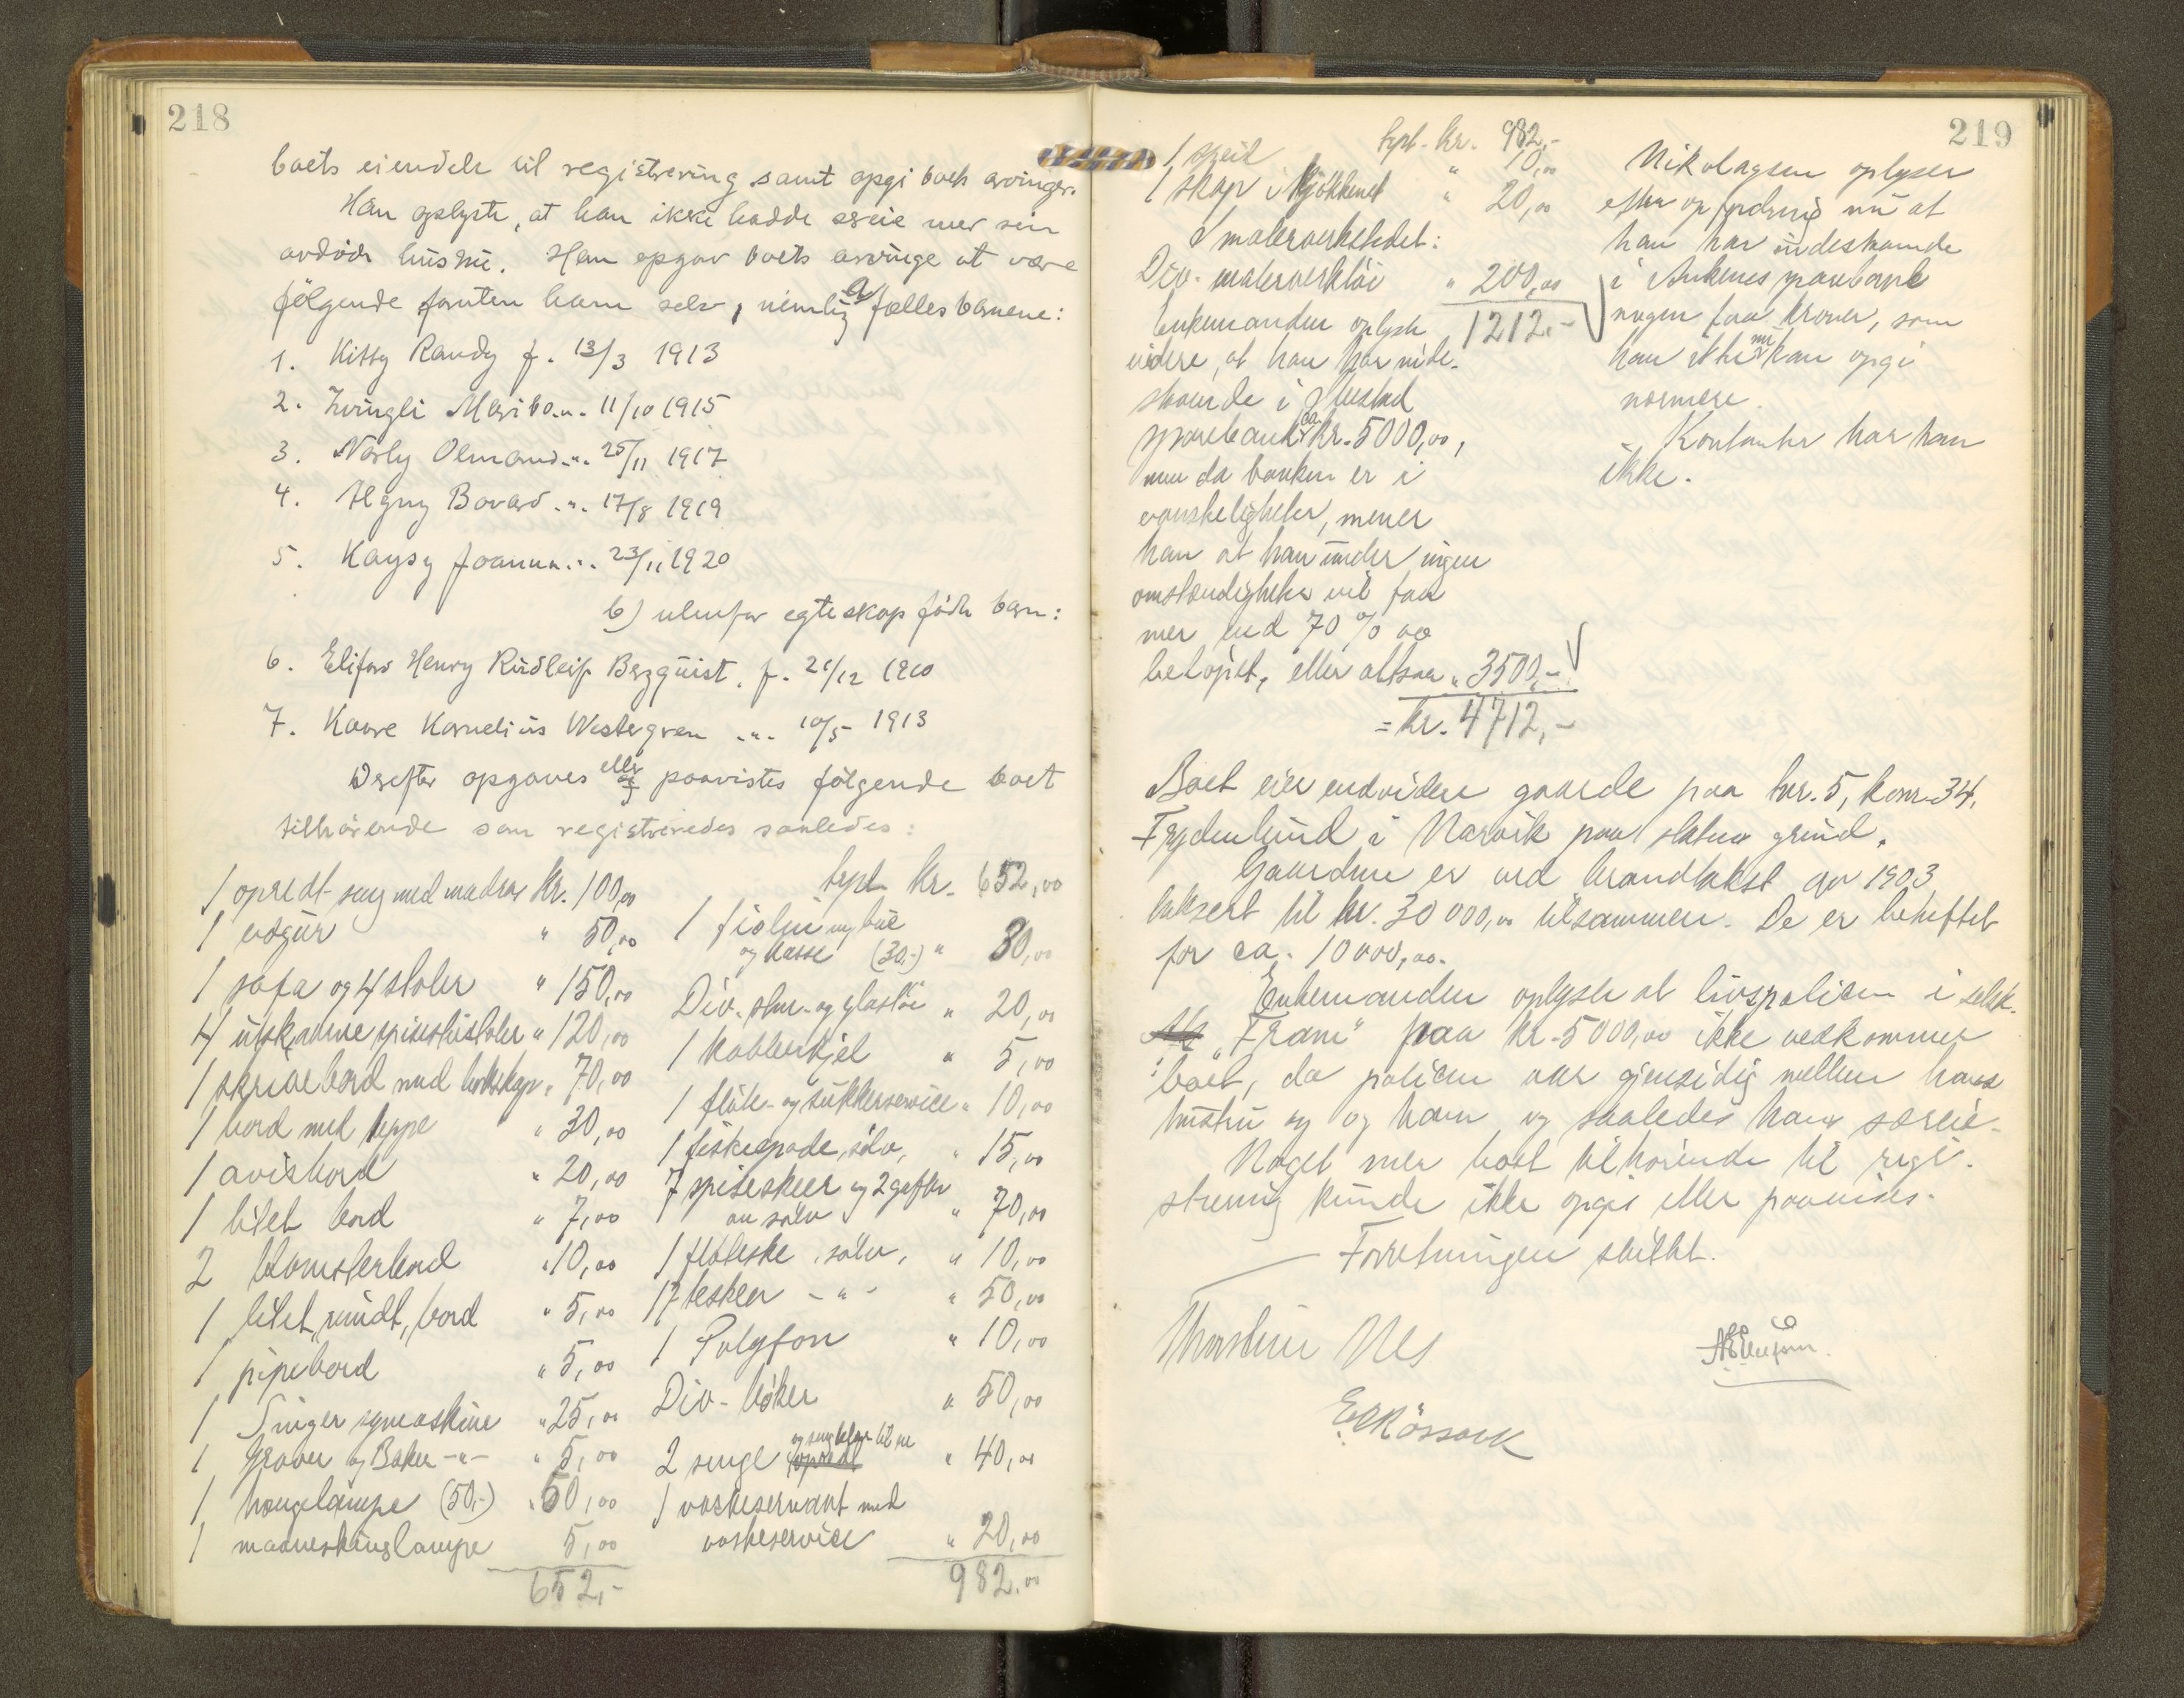 218
boets eiendele til registrering samt opgi boets arvinger.
Han oplyste, at han ikke hadde særeie mer sin
avdøde hustru. Han opgav boets arvinge at være
følgende foruten ham selv, nemlig a/ fælles barnene:
1. Kitty Randy f. 13/3 1913
2. Zwingli Maribo -"- 11/10 1915
3. Narly Olmand -"- 25/11 1917
4. Algny Bovard -"- 17/8 1919
5. Kaysy Joanna -"- 23/11 1920
b) utenfor egteskap fødte barn:
6. Elifas Henry Rudleif Bergquist. f. 21/12 1910
7. Kaare Kornelius Westergren -"- 10/5 1913
Derefter opgaves eller paavistes følgende boet
tilhørende som registreredes saaledes:
1 opredt seng med madras kr. 100,00
1 vægur " 50,00
1 sofa og 4 stoler " 150,00
4 utskaarne spisestuestoler " 120,00
1 skrivebord med bokskap " 70,00
1 bord med teppe " 30,00
1 avisbord " 20,00
1 litet bord " 7,00
2 blomsterbord " 10,00
1 litet, rundt, bord " 5,00
1 pipebord " 5,00
1 Singer symaskine " 25,00
1 Grover og Baker -"- " 5,00
1 hængelampe (50,-) " 50,00
1 maaneskinslampe 5,00
652,-
trpt. kr. 652,00
1 fiolin og bue
og kasse (30,-) " 30,00
Div. sten- og glastøi " 20,00
1 kobberkjel " 5,00
1 fløte- og sukkerservice " 10,00
1 fiskespade, sølv, " 15,00
7 spiseskeer og 2 gafler
av sølv " 70,00
1 fløteske, sølv, " 10,00
17 teskeer -"- " 50,00
1 Polyfon " 10,00
Div. bøker " 50,00
og sengeklær til ne
2 senge opredt " 40,00
1 vaskeservant med
vaskeservice " 20,00
982,00
219
trpt. kr. 982,-
1 speil " 10,00
1 skap i kjøkkenet " 20,00
I malerverkstedet:
Div. malerverktøi " 200,00
1212,-
Enkemanden oplyste
videre, at han har inde-
staaende i
sparebank ca kr. 5000,00,
men da banken er i
vanskeligheter, mener
han at han under ingen
omstændigheter vil faa
mer end 70 % av
beløpet, eller altsaa " 3500,-
= kr. 4712,-
Nikolaysen oplyser
efter opfordring nu at
han har indestaaende
i Ankenes sparebank
nogen faa kroner, som
han ikke nu kan opgi
nærmere.
Kontanter har han
ikke.
Boet eier endvidere gaarde paa bnr. 5, k.nr. 34,
Frydenlund i Narvik paa statens grund.
Gaardene er ved brandtakst av 1903
taksert til kr. 30 000,00 tilsammen. De er beheftet
for ca. 10000,00.
Enkemanden oplyste at livspolicen i selsk.
"Fram" paa kr. 5000,00 ikke vedkommer
boet, da policen var gjensidig mellem hans
hustru og og ham og saaledes hans særeie.
Noget mer boet tilhørende til regi-
strering kunde ikke opgis eller paavises.
Forretningen sluttet.
Thorstein Nes